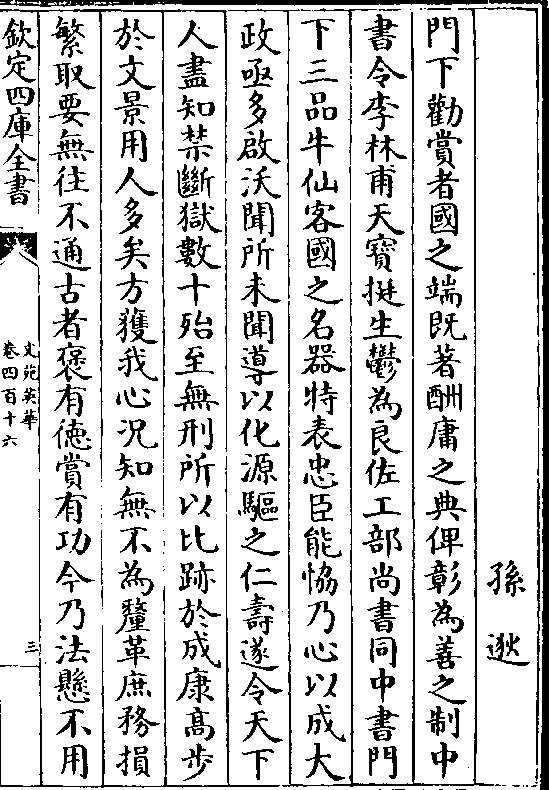 孫逖
門下勸賞者國之端既著酬庸之典俾彰為善之制中
書令李林甫天寶挺生鬱為良佐工部尚書同中書門
下三品牛仙客國之名器特表忠臣能恊乃心以成大
政亟多啟沃聞所未聞導以化源驅之仁壽遂令天下
人盡知禁斷獄數十殆至無刑所以比跡於成康高步
於文景用人多矣方獲我心況知無不為釐革庶務損
繁取要無往不通古者褒有徳賞有功今乃法懸不用
欽定四庫全書
文苑英華
卷四百十六
三